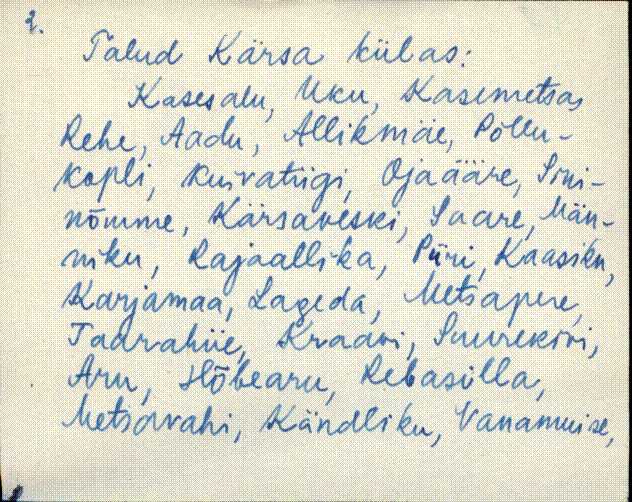 2.
Talud Kärsa külas:
Kasesalu, Uku, Kasemetsa,
Rehe, Aadu, Allikmäe, Põllu-
kopli, Kuivatiigi, Ojaääre, Sini-
nõmme, Kärsaveski, Saare, Män-
niku, Rajaallika, Piiri, Kaasiku,
Karjamaa, Lageda, Metsapere,
Taarahiie, Kraavi, Suurekivi,
Aru, Hõbearu, Rebasilla,
Metsavahi, Kändliku, Vanamuise,